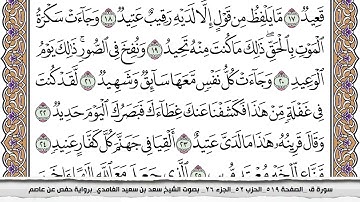 قَعِيدٌ ١٧ مَّا يَلْفِظُ مِن قَوْلٍ إِلَّا لَدَيْهِ رَقِيبٌ عَتِيدٌ ١٨ وَجَآءَتْ سَكْرَةُ
ٱلْمَوْتِ بِٱلْحَقِّ ذَٰلِكَ مَا كُنتَ مِنْهُ تَحِيدُ ١٩ وَنُفِخَ فِى ٱلصُّورِ ذَٰلِكَ يَوْمُ
ٱلْوَعِيدِ ٢٠ وَجَآءَتْ كُلُّ نَفْسٍ مَّعَهَا سَآئِقٌ وَشَهِيدٌ ٢١ لَّقَدْ كُنتَ
فِى غَفْلَةٍ مِّنْ هَٰذَا فَكَشَفْنَا عَنكَ غِطَآءَكَ فَبَصَرُكَ ٱلْيَوْمَ حَدِيدٌ ٢٢
وَقَالَ قَرِينُهُۥ هَٰذَا مَا لَدَىَّ عَتِيدٌ ٢٣ أَلْقِيَا فِى جَهَنَّمَ كُلَّ كَفَّارٍ عَنِيدٍ ٢٤
سورة ق، الصفحة ٥١٩، الحزب ٥٢، الجزء ٢٦، بصوت الشيخ سعد بن سعيد الغامدي، برواية حفص عن عاصم